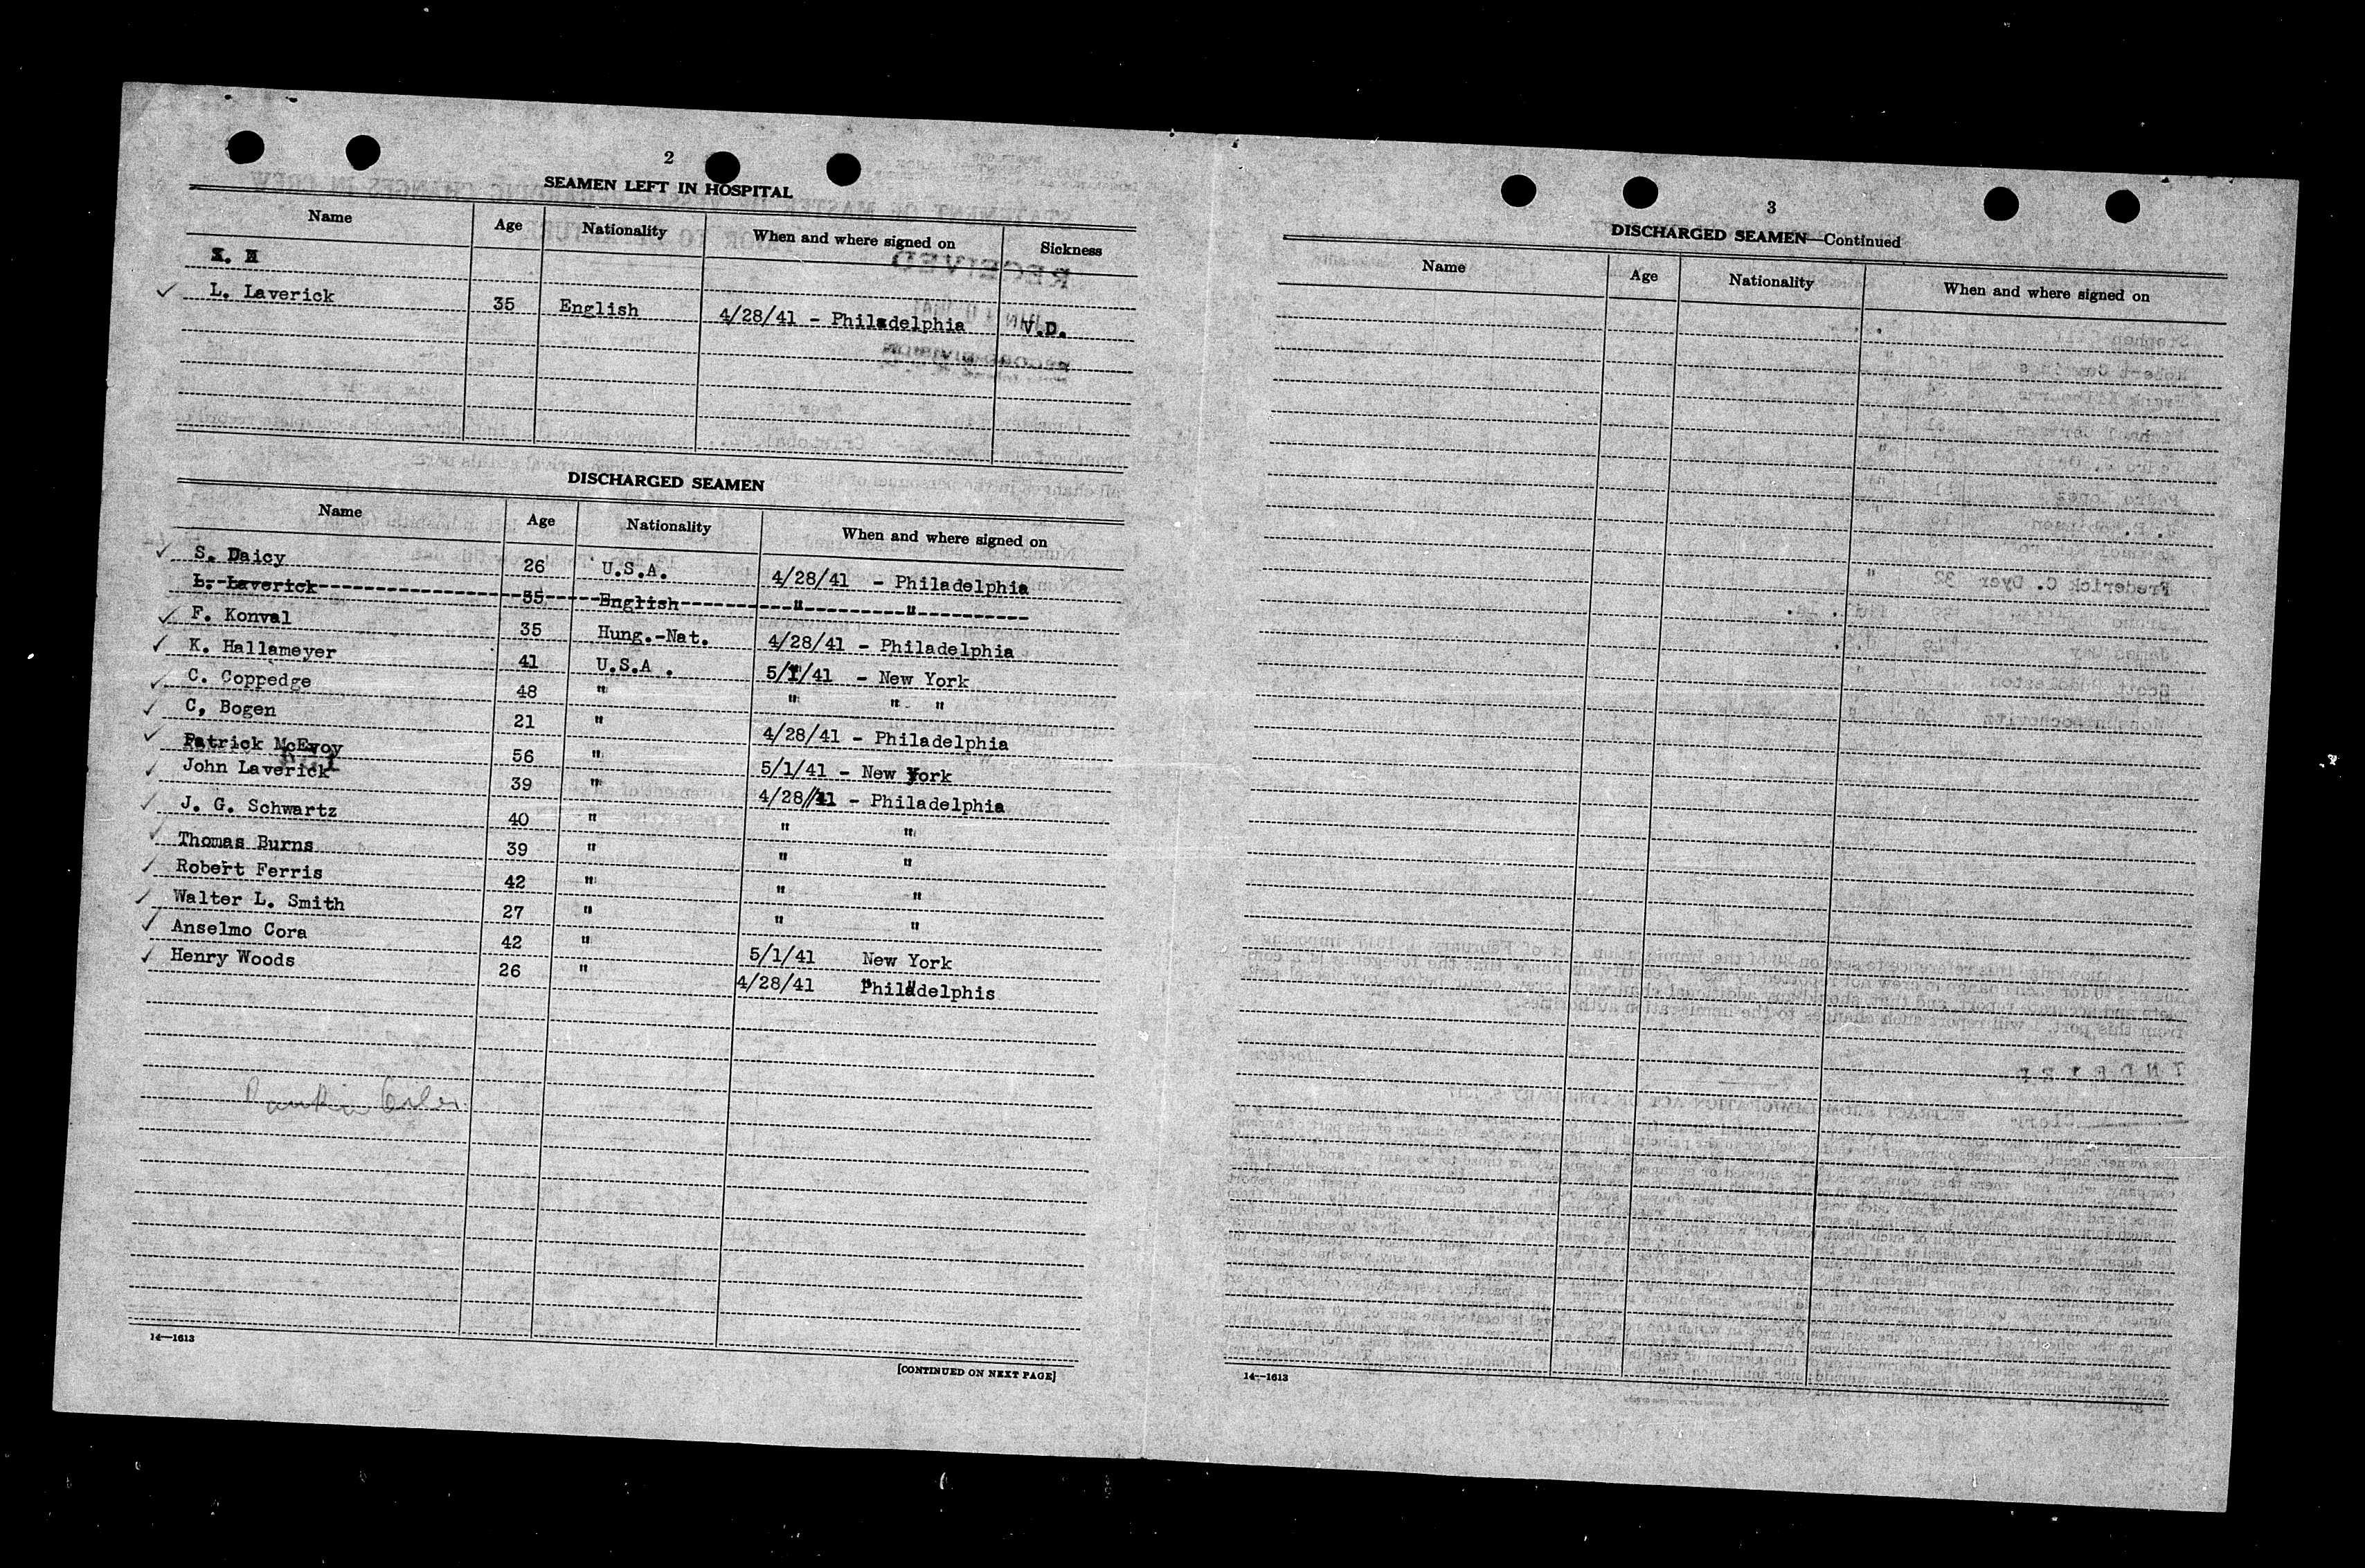 2
SEAMEN LEFT IN HOSPITAL
Name Age Nationality When and where signed on Sickness
L. Laverick 35 English 4/28/41 - Philadelphia V.D.
DISCHARGED SEAMEN
Name Age Nationality When and where signed on
S. Daicy 26 U.S.A. 4/28/41 - Philadelphia
L. Laverick 35 English " "
F. Konval 35 Hung.-Nat. 4/28/41 - Philadelphia
K. Hallameyer 41 U.S.A . 5/1/41 - New York
C. Coppedge 48 " " " "
C, Bogen 21 " 4/28/41 - Philadelphia
Patrick McEvoy 56 " 5/1/41 - New York
John Laverick 39 " 4/28/41 - Philadelphia
J. G. Schwartz 40 " " "
Thomas Burns 39 " " "
Robert Ferris 42 " " "
Walter L. Smith 27 " " "
Anselmo Cora 42 " 5/1/41 New York
Henry Woods 26 " 4/28/41 Philadelphis
14—1613
[CONTINUED ON NEXT PAGE]
3
DISCHARGED SEAMEN—Continued
Name Age Nationality When and where signed on
14—1613